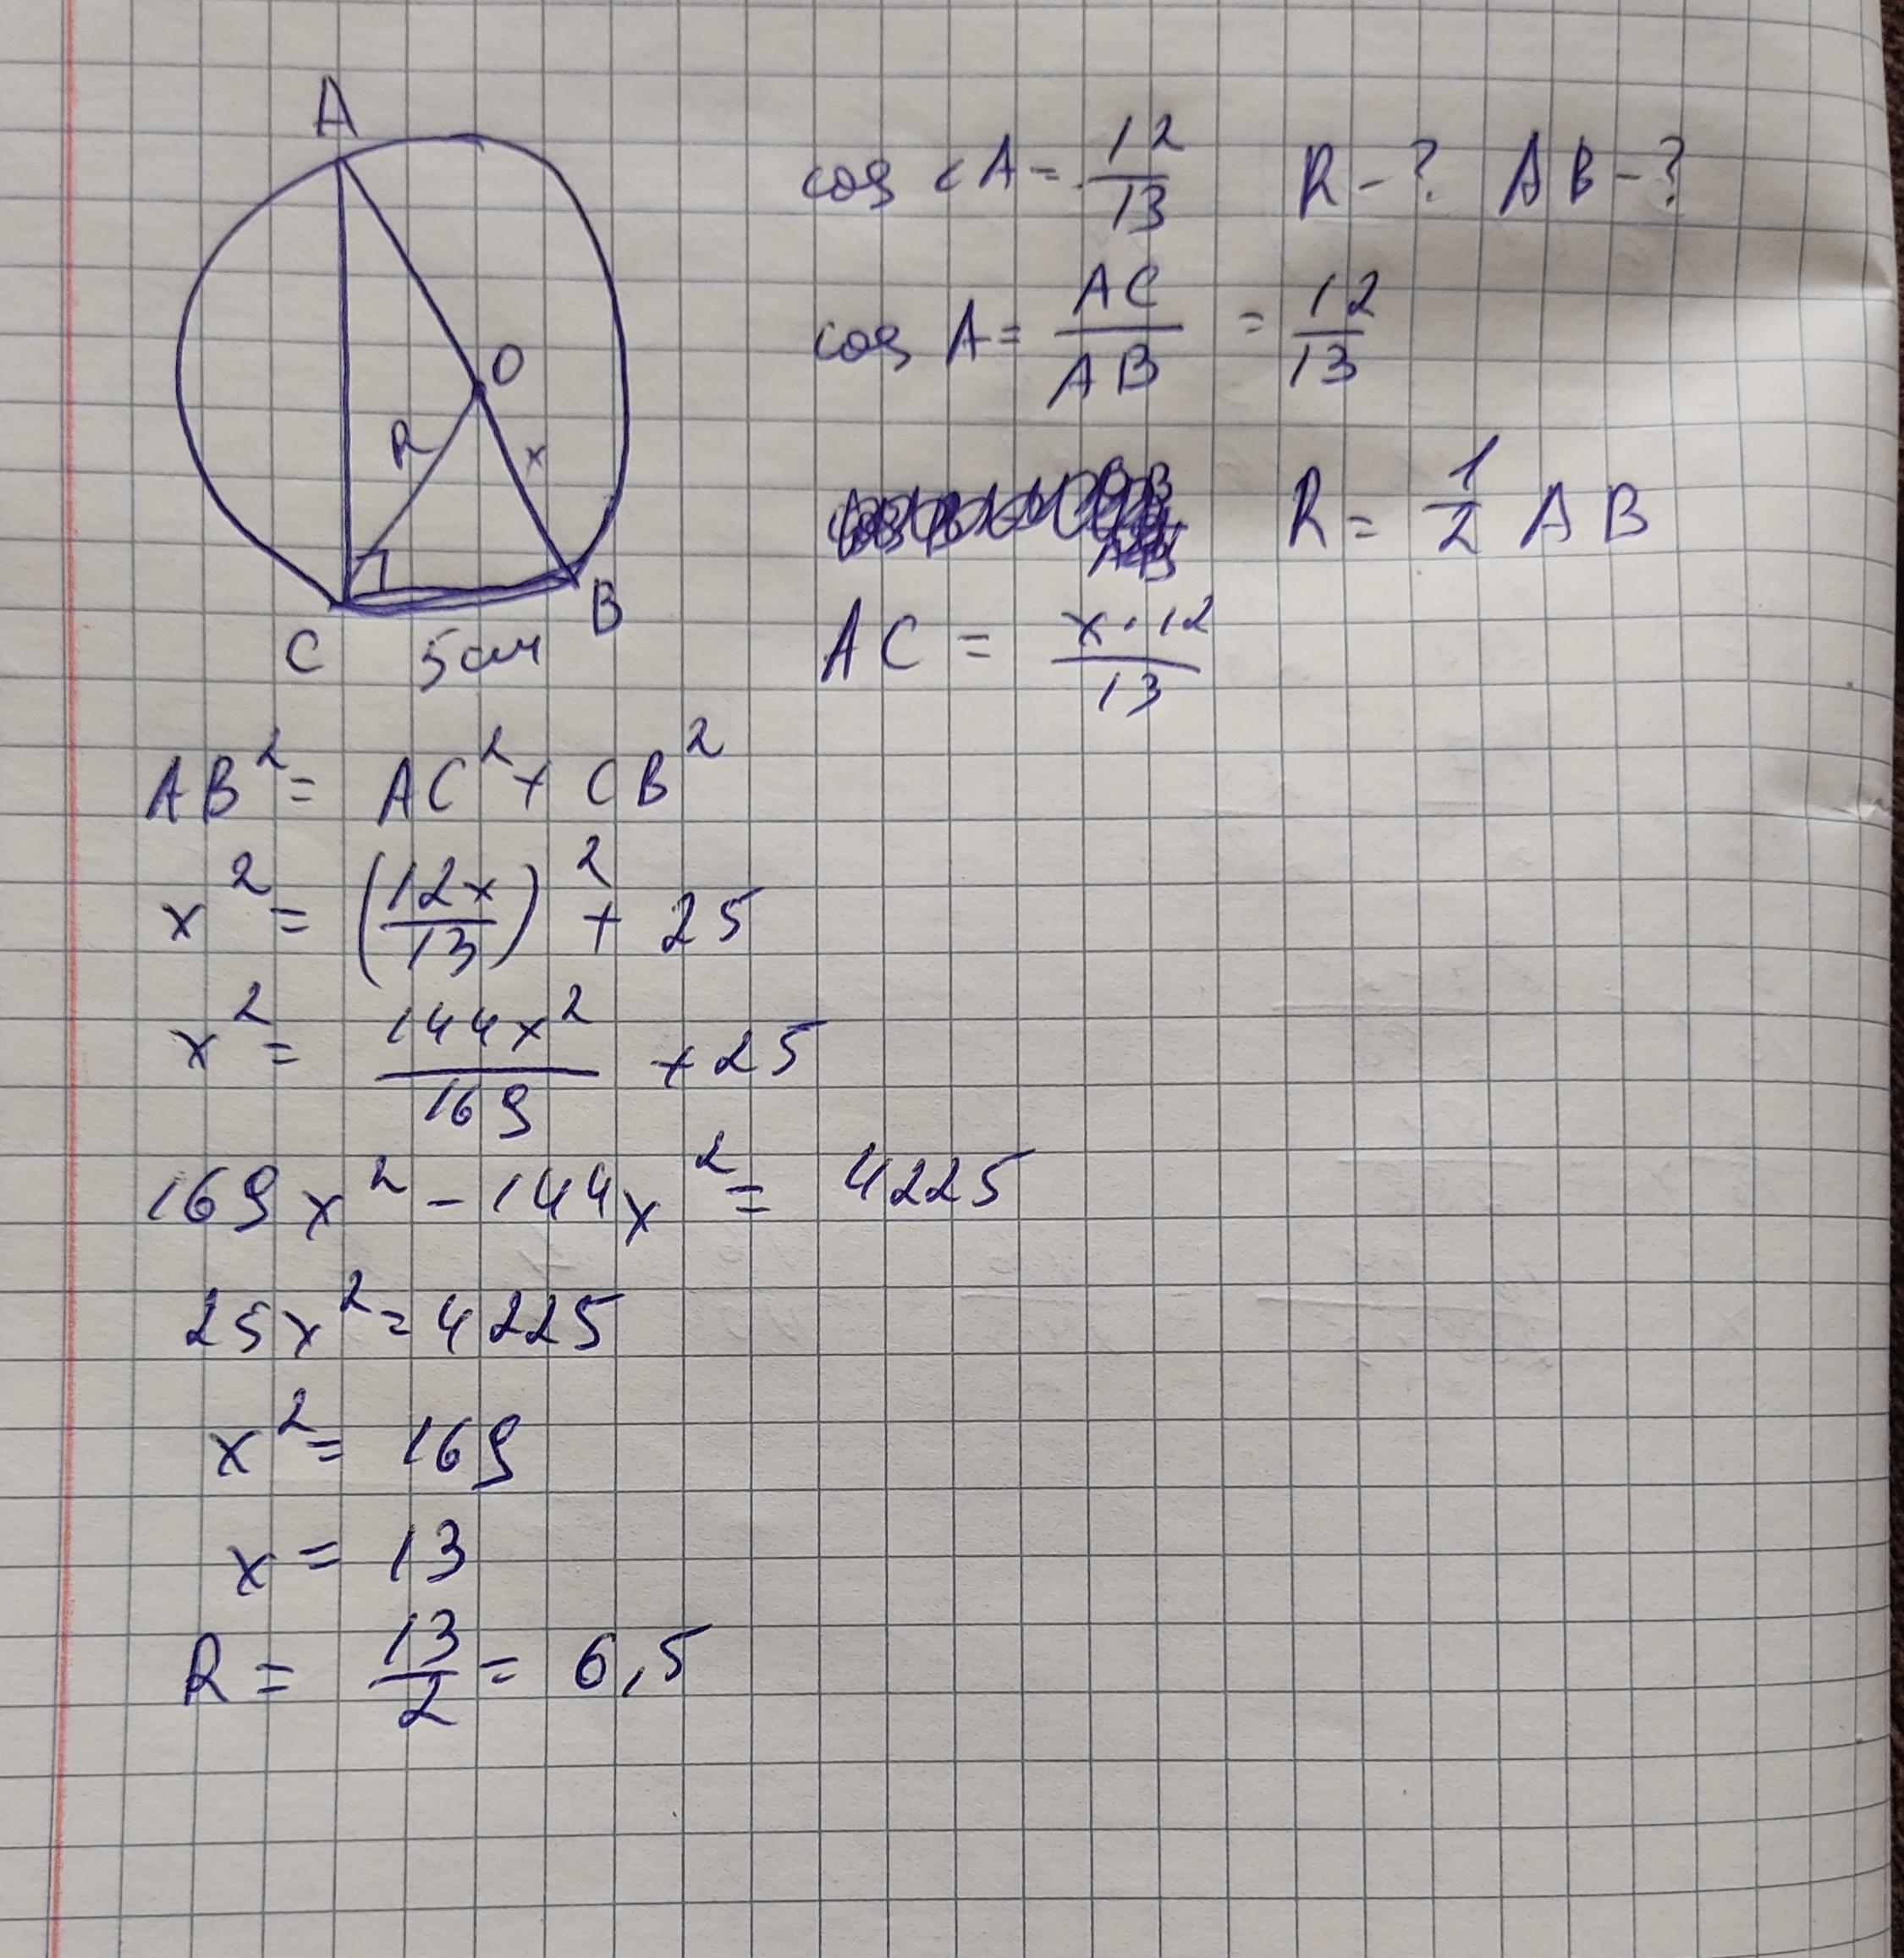 A
O
R
x
C
5 см
B
cos <A = 12/13 R - ? AB - ?
cos A = AC/AB = 12/13
R = 1/2 AB
AC = x·12/13
AB² = AC² + CB²
x² = (12x/13)² + 25
x² = 144x²/169 + 25
169x² - 144x² = 4225
25x² = 4225
x² = 169
x = 13
R = 13/2 = 6,5